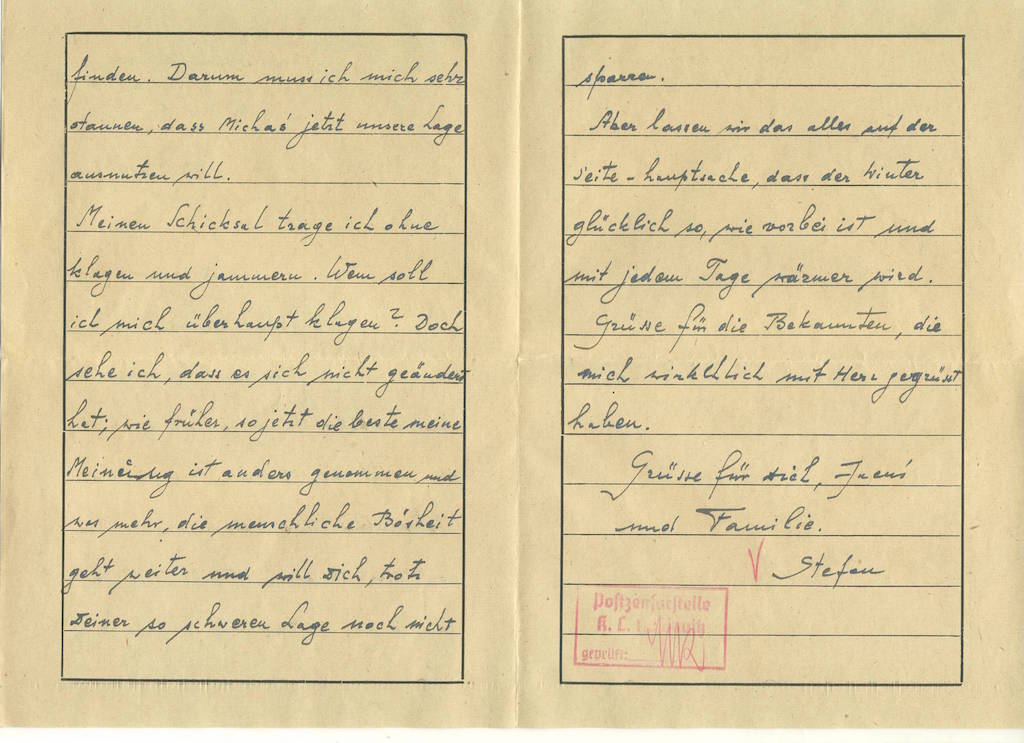 finden. Darum muss ich mich sehr
staunen, dass Michaś jetzt unsere Lage
ausnutzen will.
Meinen Schicksal trage ich ohne
klagen und jammern. Wem soll
ich mich überhaupt klagen? Doch
sehe ich, dass es sich nicht geändert
hat; wie früher, so jetzt die beste meine
Meinung ist anders genommen und
was mehr, die menschliche Bösheit
geht weiter und will Dich, trotz
Deiner so schweren Lage noch nicht
sparren.
Aber lassen wir das alles auf der
Seite - hauptsache, dass der Winter
glücklich so, wie vorbei ist und
mit jedem Tage wärmer wird.
Grüsse für die Bekannten, die
mich wirklhlich mit Herz gegrüsst
haben.
Grüsse für Dich,
und Familie.
Stefan
Postzensurstelle
K. L.
geprüft: